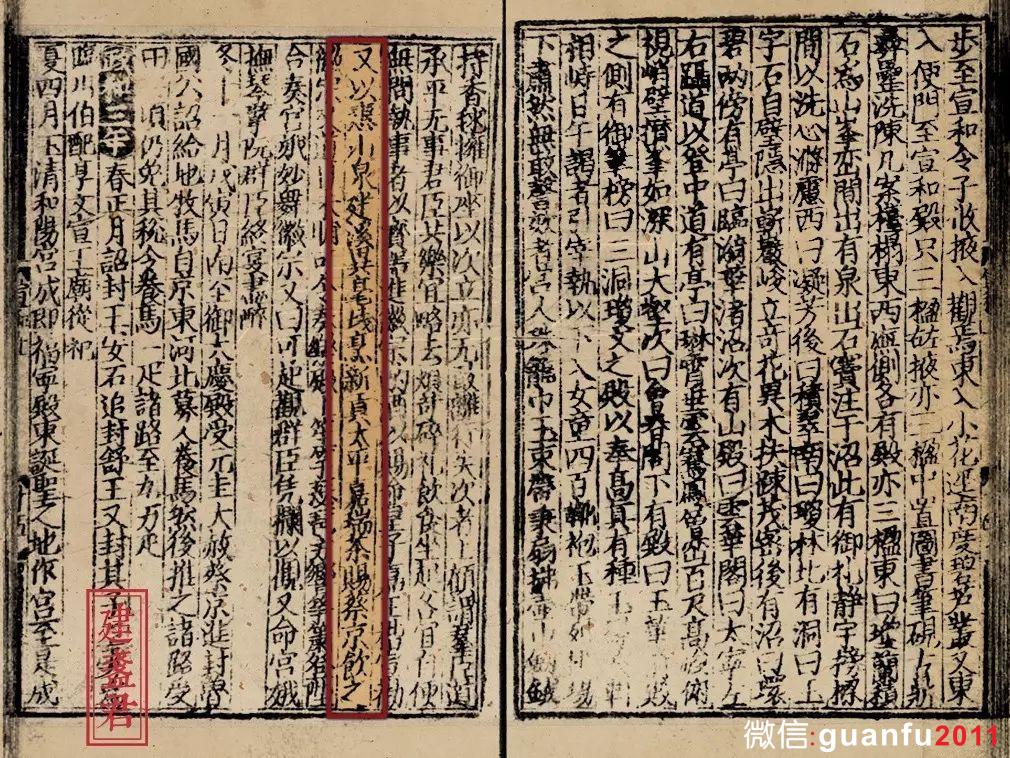 步至宣和令子攸掖入觀焉東入小花逕南度碧蘆叢又東
入便門至宣和殿只三楹左右掖亦三楹中置圖書筆硯古鼎
彝罍洗陳几案檯榻東西廡側各有殿亦三楹東曰瓊蘭積
石為山峯巒間出有泉出石竇注于沼北有御札靜宇榜梁
間以洗心滌慮西曰凝芳後曰積翠南曰瓊林北有洞曰玉
宇石自壁隱出嶄巖峻立奇花異木扶踈茂密後有沼曰環
碧兩傍有亭曰臨漪華渚沼次有山殿曰雲華閣曰太寧左
右躡道以登中道有亭曰琳霄垂雲騫鳳層巒百尺高峻俯
視峭壁攢峯如深山大壑次曰會春閣下有殿曰玉華
之側有御筆榜曰三洞瓊文之殿以奉高真有種玉
相峙日午謁者引宰執以下入女童四百靴袍玉帶列排場
下肅然無敢謦欬者宮人珠籠巾玉束帶秉扇拂壺巾劍鉞
持香毬擁御座以次立亦无敢離行失次者上傾謂羣臣曰
承平无事君臣共樂宜略去煩苛碎礼飲食坐起各宜自便
無間執事者以寶器進徽宗酌酒以賜命皇子嘉王楷宣勸
又以惠山泉建溪異毫盞烹新貢太平嘉瑞茶賜蔡京飲之
合奏宮娥妙舞徽宗又曰可起觀群臣凭欄以觀又命宮娥
撫琴擘阮群臣終宴盡醉
冬十一月戊寅日南至御大慶殿受元圭大赦蔡京進封魯
國公詔給地牧馬自京東河北募人養馬然後推之諸路受
田一頃仍免其稅今養馬一疋諸路至九万疋
春正月詔封王安石追封舒王又封其子王雱為
臨川伯配享文宣王廟從祀
夏四月玉清和陽宮成即福寧殿東誕聖之地作宮至是成
建盞君
微信:guanfu2011